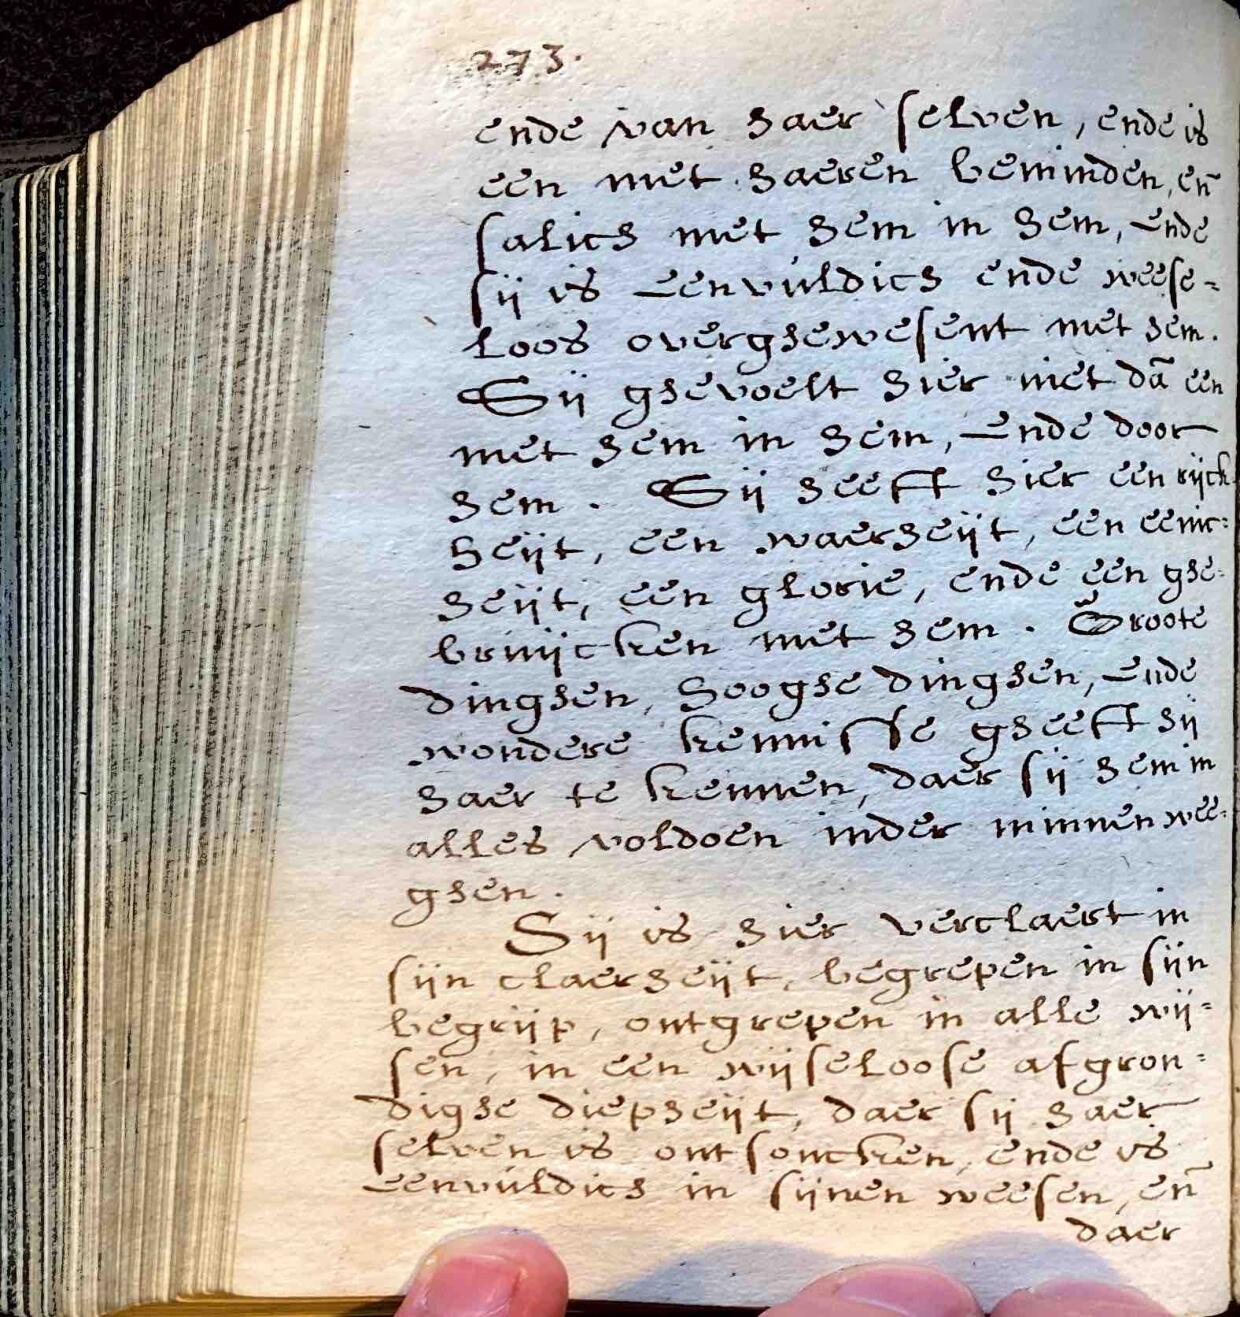 273.
ende van haer selven, ende is
een met haeren beminden, eñ
salich met hem in hem, ende
sij is eenvuldich ende weese=
loos overghewesent met hem.
Sij ghevoelt hier niet dā een
met hem in hem, ende door
hem. Sij heeft hier een rijck
heijt, een waerheijt, een eenic=
heijt, een glorie, ende een ghe=
bruijcken met hem. Groote
dinghen, hooghe dinghen, ende
wondere kennisse gheeft hij
haer te kennen, daer sij hem in
alles voldoen inder minnen wee=
ghen.
Sij is hier verclaert in
sijn claerheijt, begrepen in sijn
begrijp, ontgrepen in alle wij=
sen, in een wijseloose afgron=
dighe diepheijt, daer sij haer
selven is ontsoncken, ende is
eenvuldich in sijnen weesen, eñ
daer